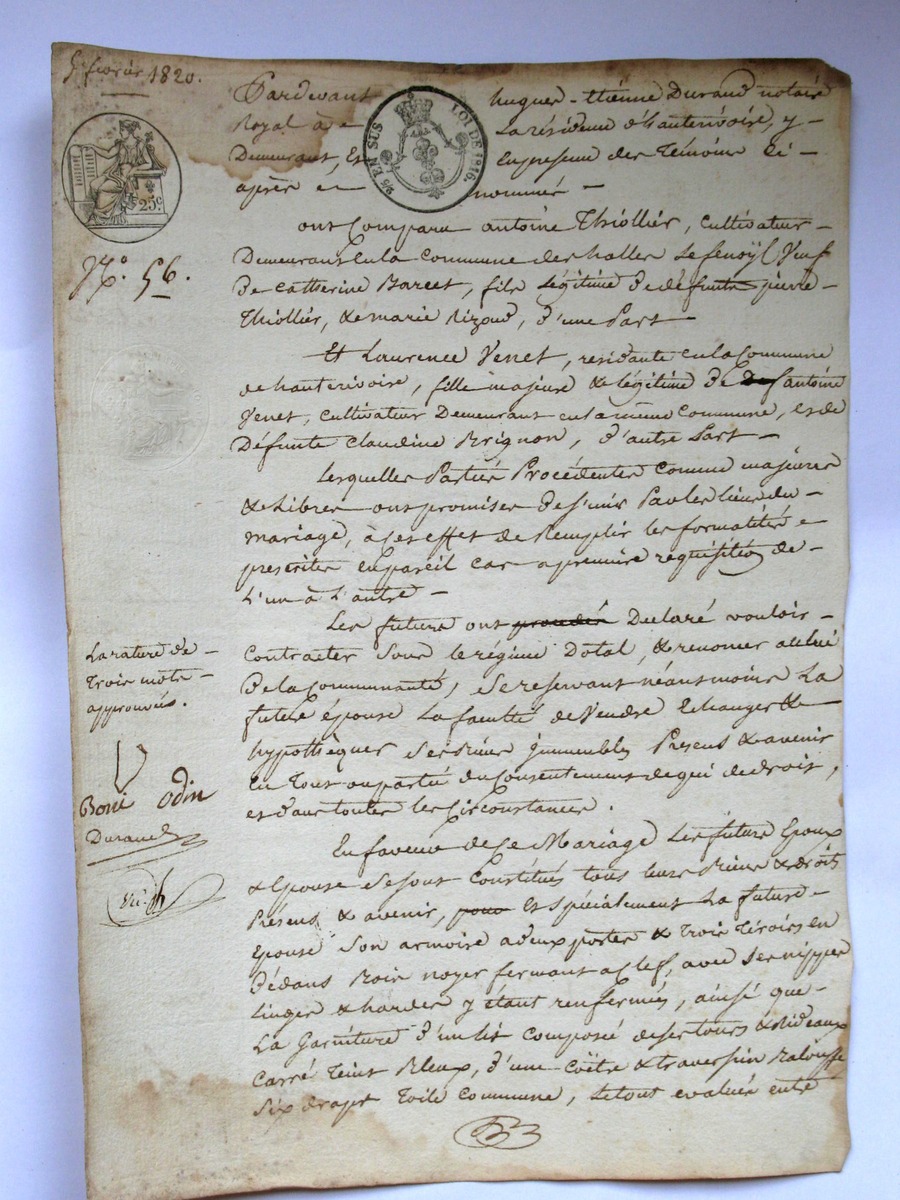 5 février 1820.
Pardevant hugues-étiénne Durand notaire
Royal à la résidence d'hauterivoire, y
Demeurant, Et En presence des témoins ci
après nommés
EN SUS
LOI DE 1816.
25 c
N.° 56.
ont Comparu antoine Thiollier, cultivateur
Demeurant en la commune des halles Le fenoÿl Veuf
De Catherine Barcet, fils légitime de défunts pierre
Thiollier, & de marie Rizoud, d'une Part
Et Laurence Venet, residante en la Commune
de hauterivoire, fille majeure & légitime de antoine
Venet, cultivateur Demeurant en la même Commune, et de
Défunte claudine Brignon, d'autre Part
Lesquelles Partiés Procédentes Comme majeures
& Libres ont promises de s'unir Par les liens du
mariage, à Cet effet de Remplir les formalités
prescrites en pareil cas a premiere requisition de
L'un à L'autre
Les futurs ont procédés Declaré vouloir
Contracter Sous le régime Dotal, & renoncer a celui
De la Communauté, se reservant néanmoins La
future épouse La faculté de Vendre Echanger &
hypothèquer Ses Biens immeubles Présens & avenir
En Tout ou partié du Consentement de qui de droit,
et dans toutes les Circonstances.
La rature de
trois mots
approuvés.
Boni Odin
Durand
En faveur de Ce Mariage Les future Epoux
& Epouse Se sont Constitués tous leurs Biens & droits
Présens & avenir, pour Et spécialement La future
Epouse Son armoire a deux portes & Trois Tiroirs en
Dédans Bois noyer fermant a Clef, avec Ses nippes
Linges & hardes y étant renfermés, ainsi que
La Garniture d'un lit composée de ses tours & Rideaux
Carré Teint Bleux, d'une Coëtre & traversin Balouffe
Six draps Toile Commune, Le tout evaluée entre